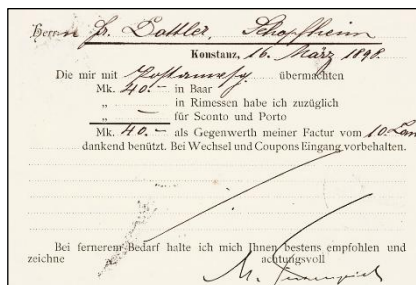 Herrn Fr. Dattler, Schopfheim
Konstanz, 16. März 1898.
Die mir mit Postanweisg übermachten
Mk. 40.- in Baar
„ — in Rimessen habe ich zuzüglich
„ — für Sconto und Porto
Mk. 40.- als Gegenwerth meiner Factur vom 10.
dankend benützt. Bei Wechsel und Coupons Eingang vorbehalten.
Bei fernerem Bedarf halte ich mich Ihnen bestens empfohlen und
zeichne achtungsvoll
M.